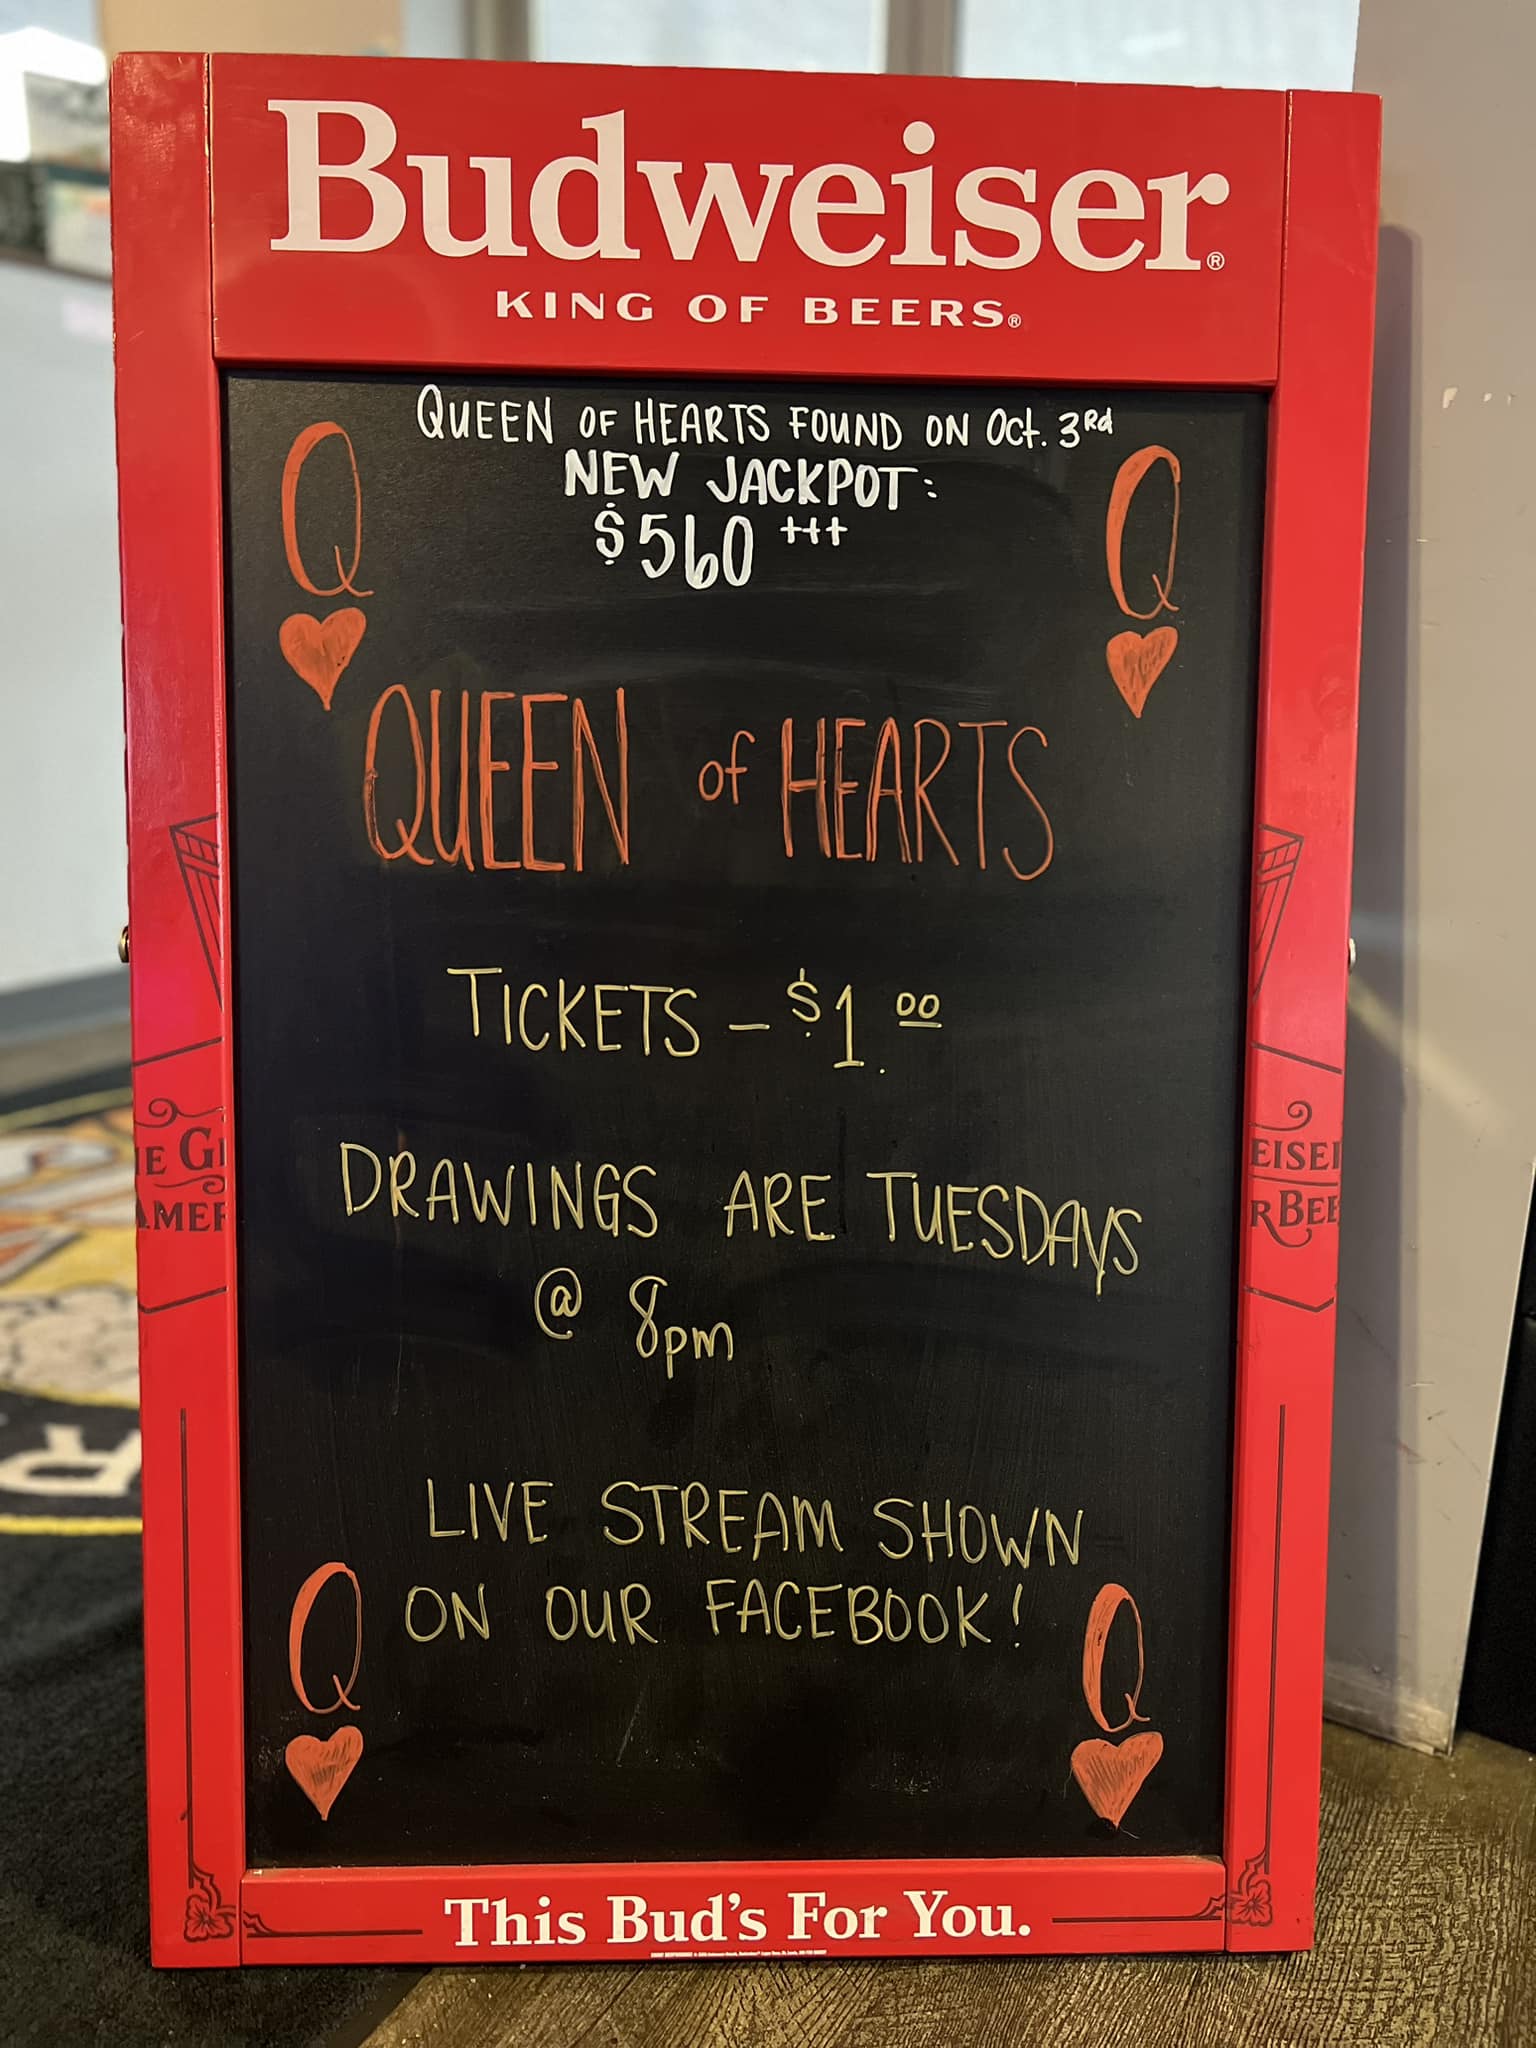 Budweiser®
KING OF BEERS®
QUEEN OF HEARTS FOUND ON Oct. 3Rd
NEW JACKPOT:
$560 +++
Q Q
QUEEN of HEARTS
TICKETS - $1.00
DRAWINGS ARE TUESDAYS
@ 8pm
E GR EISER
AMER R BEE
LIVE STREAM SHOWN
ON OUR FACEBOOK!
Q Q
This Bud's For You.